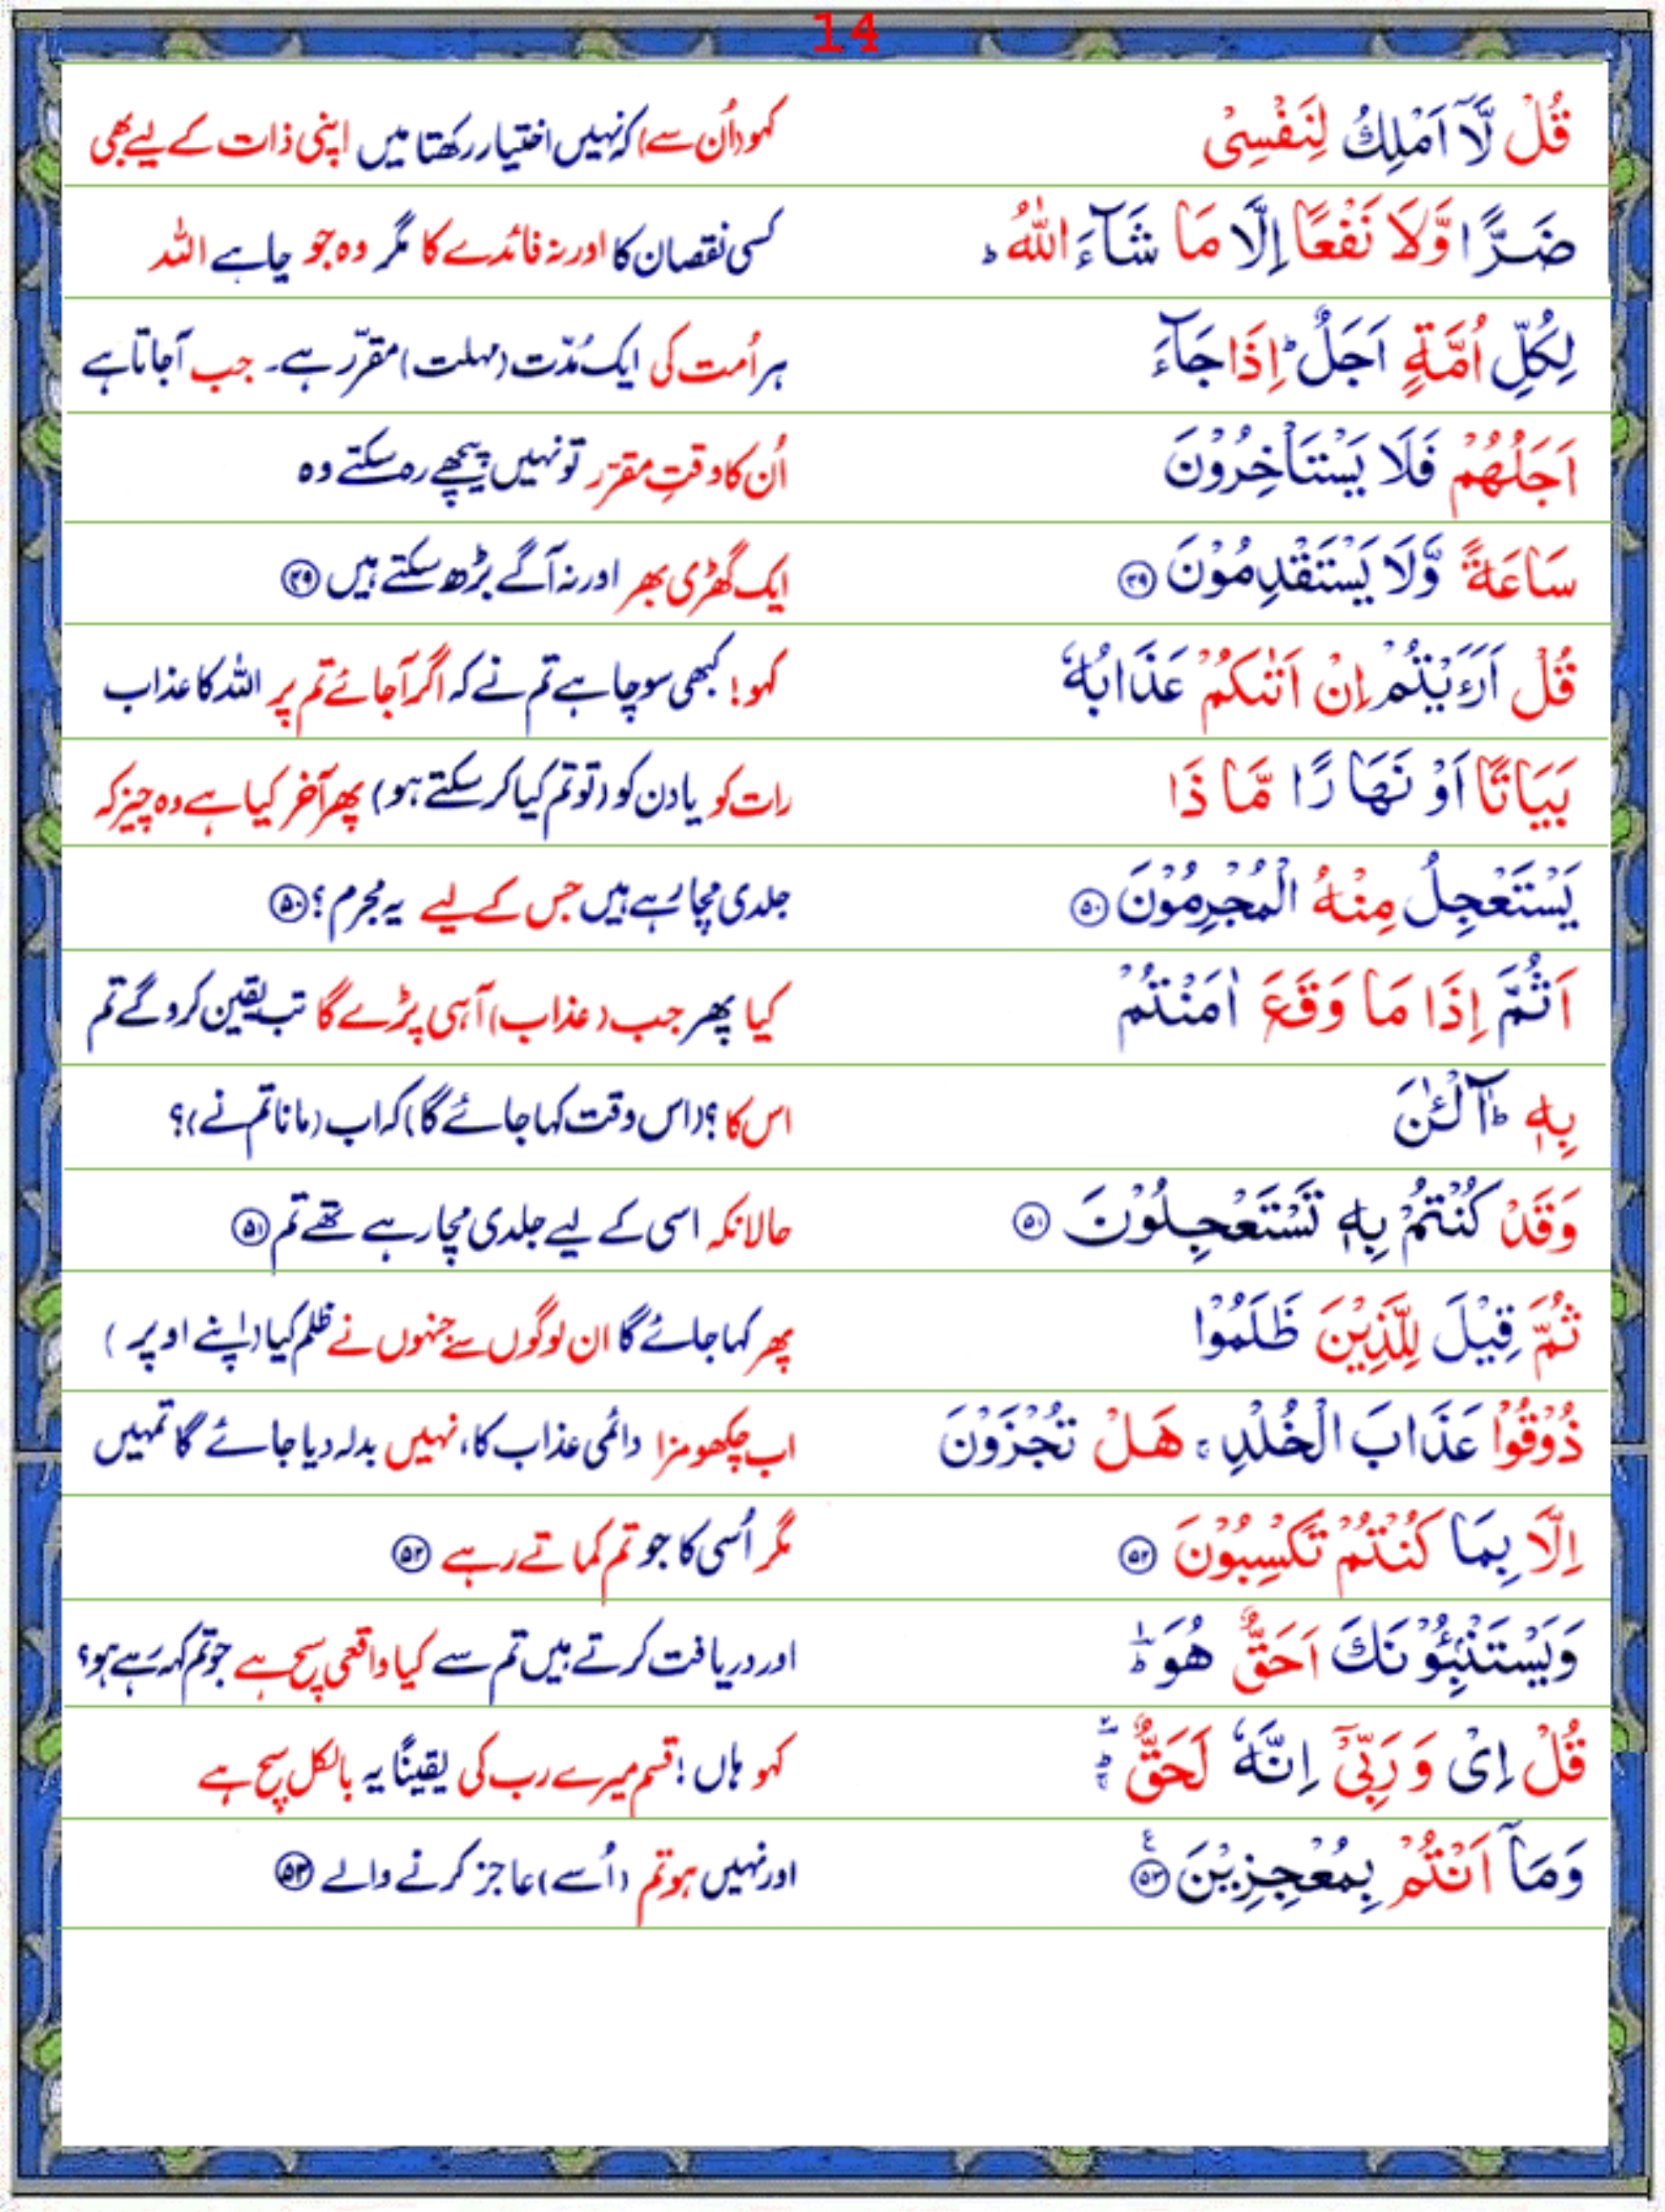 14
قُلْ لَّاۤ اَمْلِكُ لِنَفْسِیْ کہو (اُن سے) کہ نہیں اختیار رکھتا میں اپنی ذات کے لیے بھی
ضَرًّا وَّلَا نَفْعًا اِلَّا مَا شَآءَ اللّٰهُ ؕ کسی نقصان کا اور نہ فائدے کا مگر وہ جو چاہے اللہ
لِكُلِّ اُمَّةٍ اَجَلٌ ؕ اِذَا جَآءَ ہر اُمت کی ایک مُدّت (مہلت) مقرّر ہے۔ جب آجاتا ہے
اَجَلُهُمْ فَلَا یَسْتَاْخِرُوْنَ اُن کا وقتِ مقرّر تو نہیں پیچھے رہ سکتے وہ
سَاعَةً وَّلَا یَسْتَقْدِمُوْنَ ۴۹ ایک گھڑی بھر اور نہ آگے بڑھ سکتے ہیں ۴۹
قُلْ اَرَءَیْتُمْ اِنْ اَتٰىكُمْ عَذَابُهٗ کہو! کبھی سوچا ہے تم نے کہ اگر آجائے تم پر اللہ کا عذاب
بَیَاتًا اَوْ نَهَارًا مَّا ذَا رات کو یا دن کو (تو تم کیا کر سکتے ہو) پھر آخر کیا ہے وہ چیز کہ
یَسْتَعْجِلُ مِنْهُ الْمُجْرِمُوْنَ ۵۰ جلدی مچا رہے ہیں جس کے لیے یہ مجرم؟ ۵۰
اَثُمَّ اِذَا مَا وَقَعَ اٰمَنْتُمْ کیا پھر جب (عذاب) آہی پڑے گا تب یقین کرو گے تم
بِهٖ ؕ آٰلْـٰٔنَ اس کا؟ (اس وقت کہا جائے گا) کہ اب (مانا تم نے)؟
وَقَدْ كُنْتُمْ بِهٖ تَسْتَعْجِلُوْنَ ۵۱ حالانکہ اسی کے لیے جلدی مچا رہے تھے تم ۵۱
ثُمَّ قِیْلَ لِلَّذِیْنَ ظَلَمُوْا پھر کہا جائے گا ان لوگوں سے جنہوں نے ظلم کیا (اپنے اوپر )
ذُوْقُوْا عَذَابَ الْخُلْدِ ۚ هَلْ تُجْزَوْنَ اب چکھو مزا دائمی عذاب کا، نہیں بدلہ دیا جائے گا تمہیں
اِلَّا بِمَا كُنْتُمْ تَكْسِبُوْنَ ۵۲ مگر اُسی کا جو تم کماتے رہے ۵۲
وَیَسْتَنْۢبِئُوْنَكَ اَحَقٌّ هُوَ ؔؕ اور دریافت کرتے ہیں تم سے کیا واقعی سچ ہے جو تم کہہ رہے ہو؟
قُلْ اِیْ وَرَبِّیْۤ اِنَّهٗ لَحَقٌّ ؔؕ کہو ہاں! قسم میرے رب کی یقینًا یہ بالکل سچ ہے
وَمَاۤ اَنْتُمْ بِمُعْجِزِیْنَ ۵۳ ع اور نہیں ہو تم (اُسے) عاجز کرنے والے ۵۳